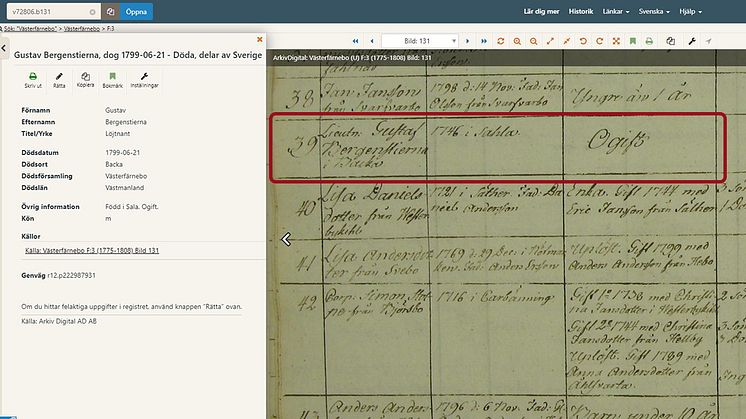 v72806.b131
Öppna
Lär dig mer Historik Länkar Svenska Hjälp
Sök: "Västerfärnebo" > Västerfärnebo > F:3
Gustav Bergenstierna, dog 1799-06-21 - Döda, delar av Sverige
Skriv ut Rätta Kopiera Bokmärk Inställningar
Förnamn Gustav
Efternamn Bergenstierna
Titel/Yrke Löjtnant
Dödsdatum 1799-06-21
Dödsort Backa
Dödsförsamling Västerfärnebo
Dödslän Västmanland
Övrig information Född i Sala. Ogift.
Kön m
Källor
Källa: Västerfärnebo F:3 (1775-1808) Bild 131
Genväg r12.p222987931
Om du hittar felaktiga uppgifter i registret, använd knappen "Rätta" ovan.
Källa: Arkiv Digital AD AB
Bild: 131
ArkivDigital: Västerfärnebo (U) F:3 (1775-1808) Bild: 131
38 Jan Jansson 1798 d: 14 Nov. Fad: Jan
från Svarfvarbo Olsson från Svarfvarbo Yngre än 1 år
39 Lieutn: Gustaf 1746 i Sahla. Ogift
Bergenstierna
i Backa
40 Lisa Daniels 1721 i Säther. Fad: Da Enka. Gift 1744 med
dotter från niel Andersson Eric Jansson från
41 Lisa Andersdot 1769 d: 29 Dec: i Gift 1799 med
ter från Fad: Anders Anders Andersson från
42 Corp: Simon 1716 i Gift 1:o 1738 med Christi
från na Jansdotter i
Gift 2:o 1744 med Christina
Jansdotter från
Gift 1789 med
Anna Andersdotter från
43 Anders Anders 1796 d: 6 Nov. Fad: Yngre än 10 år